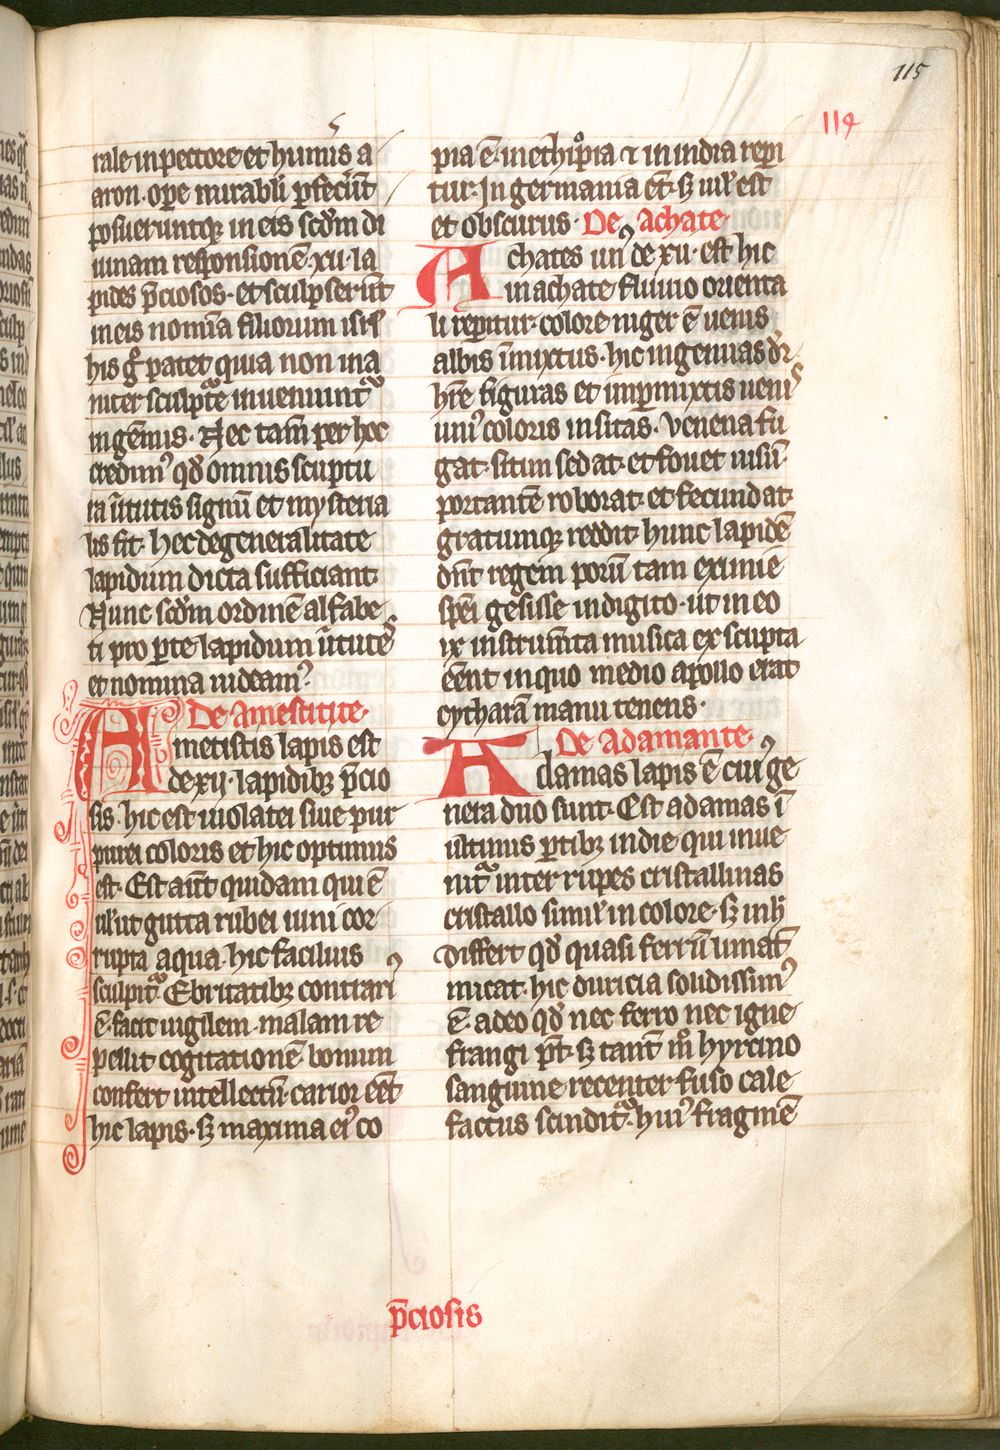 115
114
rale in pectore et humĩs a
aron. oꝑe mirabili ꝑfecer̃ūt
posueruntqꝫ in eis scd̃m di
uinam responsionē xii la
pides p̄ciosos. et sculpserūt
in eis nomīa filiorum isrł
his g̊ patet quia non ina
niter sculpte inueniuntᷣ
in gēmis. Nec tam̄ per hoc
credimꝰ qđ omnis scuptu
ra ũtutis signū et mysteria
lis sit. hec de generalitate
lapidum dicta sufficiant
Nunc scd̃m ordinē alfabe
ti pro ꝑte lapidum ũtutes
et nomina uideamꝰ.
De amestitite.
Ametistis lapis est
de xii. lapidibꝫ p̄cio
sis. hic est uiolatei siue pur
purei coloris et hic optimus
est. Est aūt quidam qui ē
uł ut gutta rubei uini cor
rupta aqua. hic facilius
sculpitᷣ. Ebritatibꝫ contrariꝰ
ē. facit uigilem. malam re
pellit cogitationē bonum
confert intellectū. carior eēt
hic lapis. sꝫ maxima eiꝰ co
pia ē. in ethiop̊ia ⁊ in india reꝑi
tur. In germania et̄. sꝫ uił est
et obscurus. De achate.
Achates unꝰ de xii. est hic
in achate fluuio orienta
li reꝑitur. colore niger ē uenis
albis īmixtus. hic ingenuas dr̃
hr̃e figuras et imꝑmixtis uenis
uniꝰ coloris insitas. venena fu
gat. sitim sedat. et fouet uisū.
portantē roborat. et fecundat
gratumqꝫ reddit. hunc lapidē
dn̄t regem porū tam eximie
sp̄ei gesisse in digito. ut in eo
ix instrum̄ta musica exscupta
eēnt in quo medio apollo erat
cytharā manu tenens.
De adamante.
Adamas lapis ē cuiꝰ ge
nera duo sunt. Est adamas ī
ũltimis ꝑtibꝫ indie qui inue
nitᷣ inter rupes cristallinas
cristallo simił in colore. sꝫ in h̵
differt qđ quasi ferrū limat̄
micat. hic duricia solidissimꝰ
ē. adeo qđ nec ferro nec igne
frangi pt̄. sꝫ tant̄ m̊ hyrcino
sanguine recenter fuso cale
factus scinditᷣ. huiꝰ fragmē
p̄ciosis